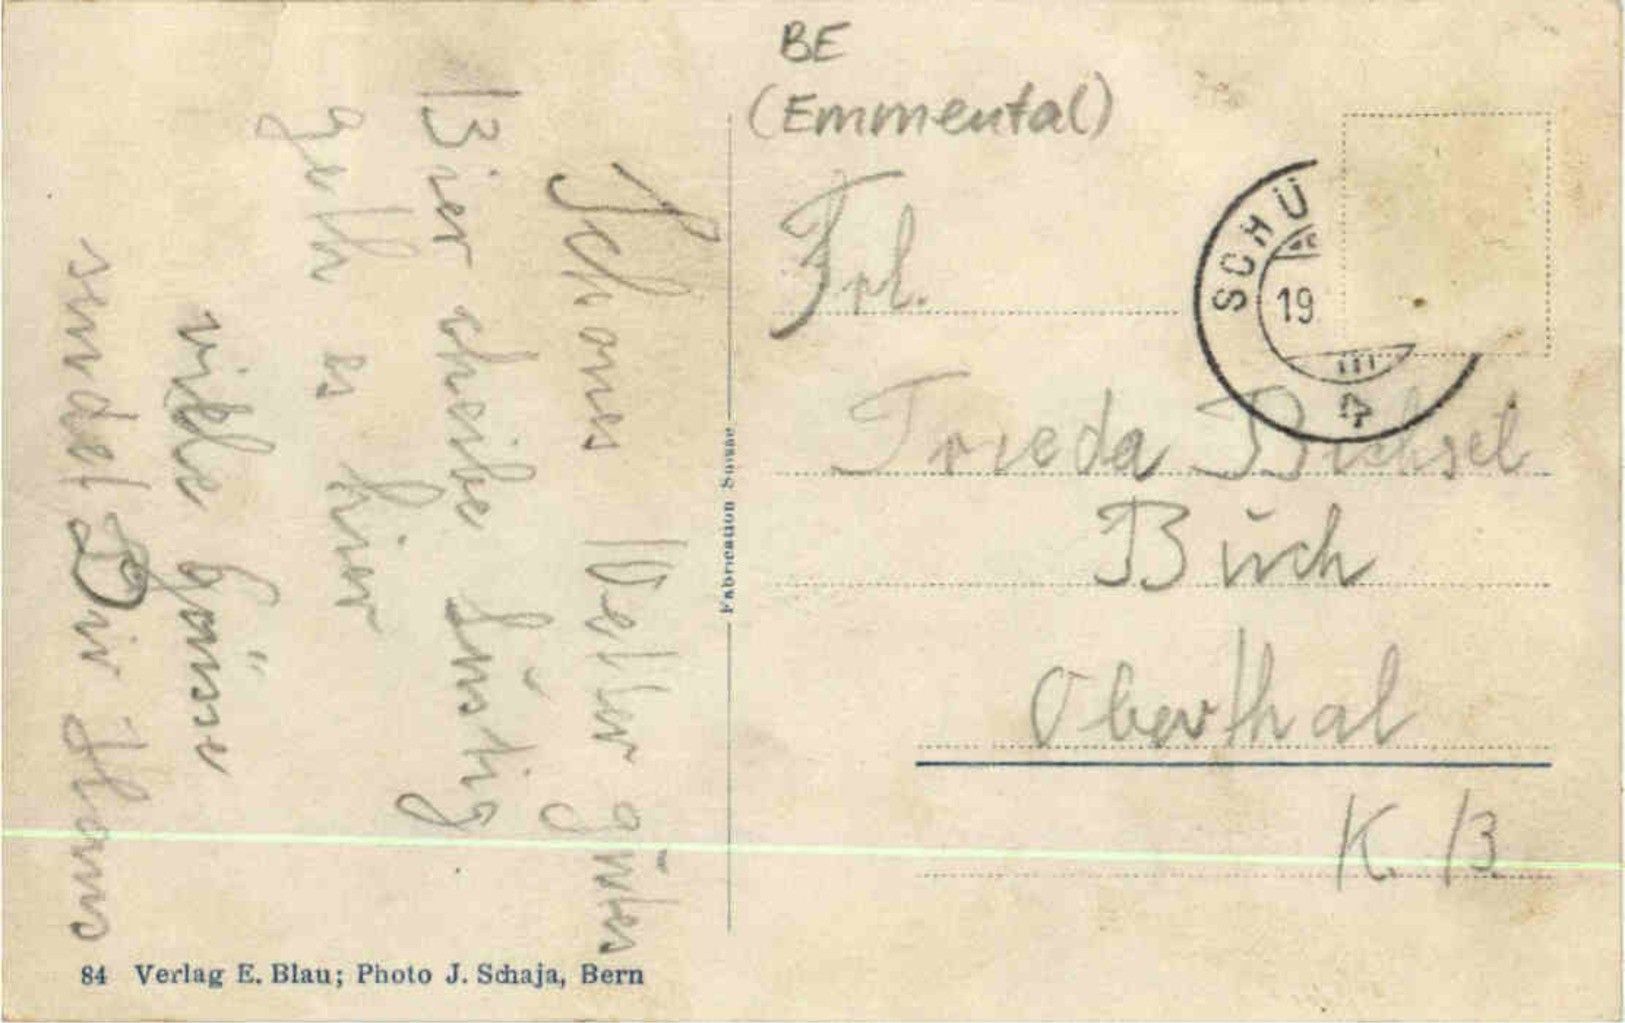 BE
(Emmental)
Schones Wetter gutes
Bier cheibe Lustig
geth es hier
viele Grüsse
sendet Dir Hans
Frl.
Frieda Bichsel
Buch
Oberthal
K. B.
SCHÜ
19
III
Fabrication Suisse
84 Verlag E. Blau; Photo J. Schaja, Bern